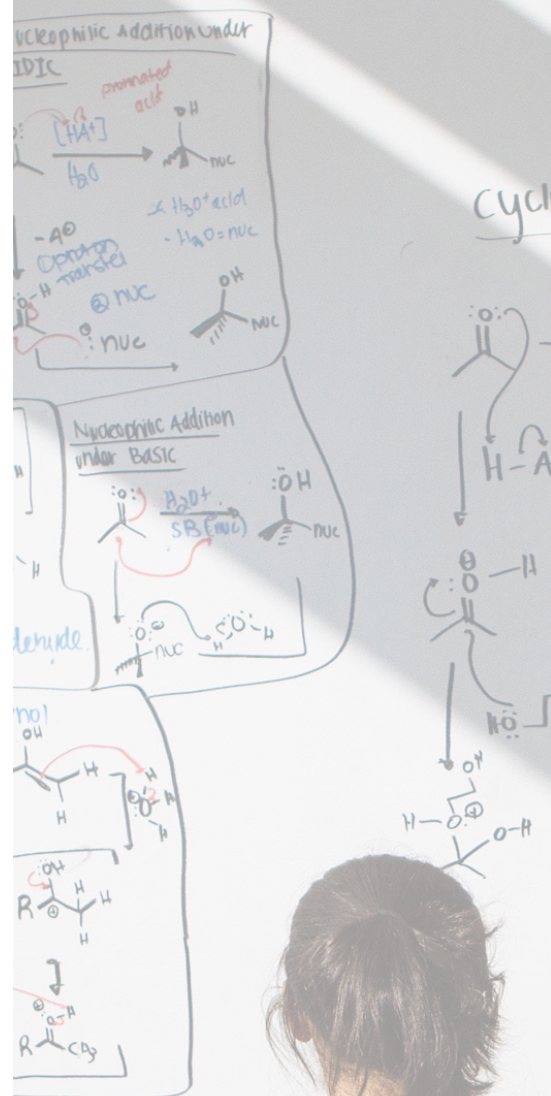 ucleophilic Addition under
IDIC
promated
acid
[HA+]
H₂O
OH
nuc
x H₃O⁺ acid
- H₂O = nuc
- A⊖
① proton
transfer
② nuc
O-H
nuc
OH
NUC
Nucleophilic Addition
under BASIC
:O:
SB (nuc)
:ÖH
nuc
:O:⊖
nuc
H
O-H
H
dehyde
nol
OH
H
H
H
H
H
OH
R
⊕
H
H
H
⊕
O-H
R
CH₃
cycl
:O:
H-A
⊕
:O-H
HÖ
OH
H-O:⊕
O-H